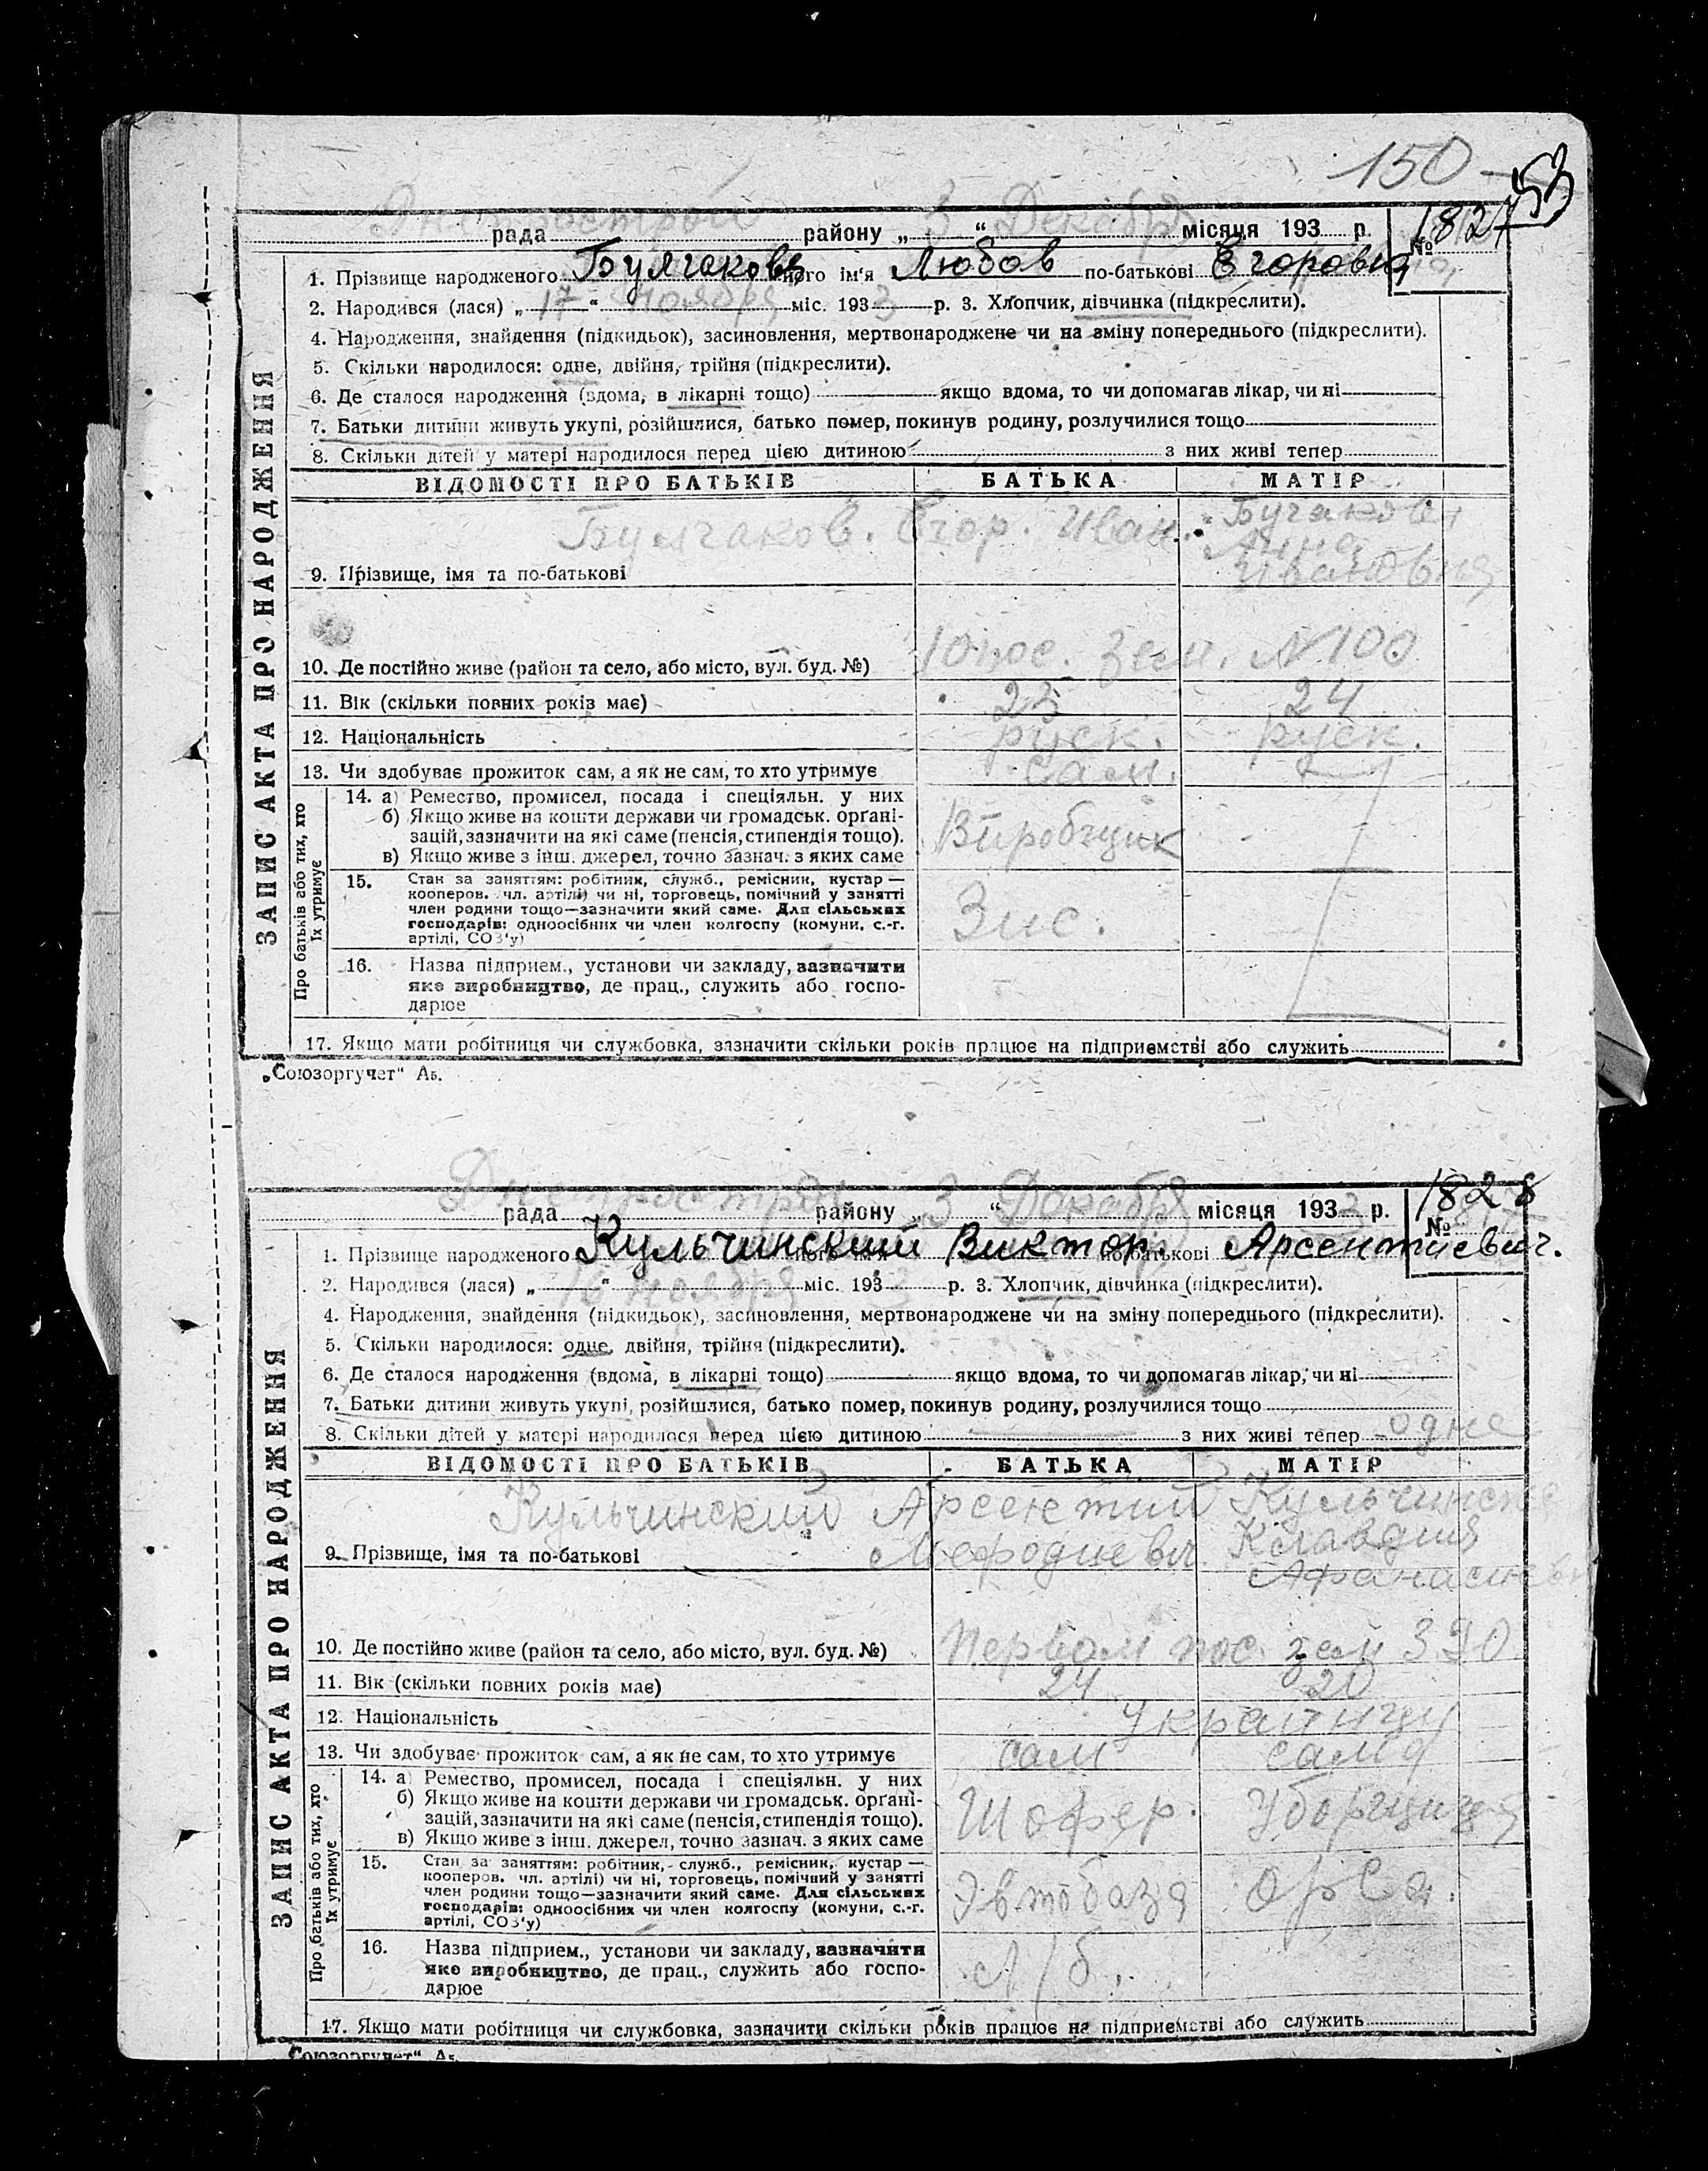 150
53
Днепрострой 3 Декабря 1827
рада району „ “ місяця 193 р. №
1. Прізвище народженого Булгакова ного ім'я Любов по-батькові Егоровна
2. Народився (лася) „ 17 “ ноября міс. 193 3 р. 3. Хлопчик, дівчинка (підкреслити).
4. Народження, знайдення (підкидьок), засиновлення, мертвонароджене чи на зміну попереднього (підкреслити).
5. Скільки народилося: одне, двійня, трійня (підкреслити).
6. Де сталося народження (вдома, в лікарні тощо) якщо вдома, то чи допомагав лікар, чи ні
7. Батьки дитини живуть укупі, розійшлися, батько помер, покинув родину, розлучилися тощо
8. Скільки дітей у матері народилося перед цією дитиною з них живі тепер
ЗАПИС АКТА ПРО НАРОДЖЕННЯ
ВІДОМОСТІ ПРО БАТЬКІВ БАТЬКА МАТІР
Булгаков. Егор. Иван. Бугакова
Анна
Ивановна
9. Прізвище, імя та по-батькові
10. Де постійно живе (район та село, або місто, вул. буд. №) 10 пос. Зем. N 100
11. Вік (скільки повних років має) 23 24
12. Національність руск. руск.
13. Чи здобуває прожиток сам, а як не сам, то хто утримує сам.
Про батьків або тих, хто їх утримує
14. а) Ремество, промисел, посада і спеціяльн. у них
б) Якщо живе на кошти держави чи громадськ. орґані-
зацій, зазначити на які саме (пенсія, стипендія тощо).
в) Якщо живе з інш. джерел, точно зазнач. з яких саме
15. Стан за заняттям: робітник, служб., ремісник, кустар —
кооперов. чл. артілі) чи ні, торговець, помічний у занятті
член родини тощо—зазначити який саме. Для сільських
господарів: одноосібних чи член колгоспу (комуни, с.-г.
артілі, СОЗ'у)
16. Назва підприєм., установи чи закладу, зазначити
яке виробництво, де прац., служить або госпо-
дарює
17. Якщо мати робітниця чи службовка, зазначити скільки років працює на підприємстві або служить
„Союзоргучет“ Аб.
Днепрострой 3 Декабря 1828
рада району „ “ місяця 193 3 р. №
1. Прізвище народженого Кульчинский Виктор. по-батькові Арсентиевич.
2. Народився (лася) „ 16 “ ноября міс. 193 р. 3. Хлопчик, дівчинка (підкреслити).
4. Народження, знайдення (підкидьок), засиновлення, мертвонароджене чи на зміну попереднього (підкреслити).
5. Скільки народилося: одне, двійня, трійня (підкреслити).
6. Де сталося народження (вдома, в лікарні тощо) якщо вдома, то чи допомагав лікар, чи ні
7. Батьки дитини живуть укупі, розійшлися, батько помер, покинув родину, розлучилися тощо
8. Скільки дітей у матері народилося перед цією дитиною з них живі тепер одне
ЗАПИС АКТА ПРО НАРОДЖЕННЯ
ВІДОМОСТІ ПРО БАТЬКІВ БАТЬКА МАТІР
Кульчинский Арсентий Кульчинская
Мефодиевич. Клавдия
Афанасиевн
9. Прізвище, імя та по-батькові
10. Де постійно живе (район та село, або місто, вул. буд. №) Первом пос. зем 390
11. Вік (скільки повних років має) 24 20
12. Національність Українци
13. Чи здобуває прожиток сам, а як не сам, то хто утримує сам сама
Про батьків або тих, хто їх утримує
14. а) Ремество, промисел, посада і спеціяльн. у них
б) Якщо живе на кошти держави чи громадськ. орґані-
зацій, зазначити на які саме (пенсія, стипендія тощо).
в) Якщо живе з інш. джерел, точно зазнач. з яких саме
Шофер. Уборщица
15. Стан за заняттям: робітник, служб., ремісник, кустар —
кооперов. чл. артілі) чи ні, торговець, помічний у занятті
член родини тощо—зазначити який саме. Для сільських
господарів: одноосібних чи член колгоспу (комуни, с.-г.
артілі, СОЗ'у)
Автобаза ОрСа.
16. Назва підприєм., установи чи закладу, зазначити
яке виробництво, де прац., служить або госпо-
дарює
17. Якщо мати робітниця чи службовка, зазначити скільки років працює на підприємстві або служить
„Союзоргучет“ Аб.